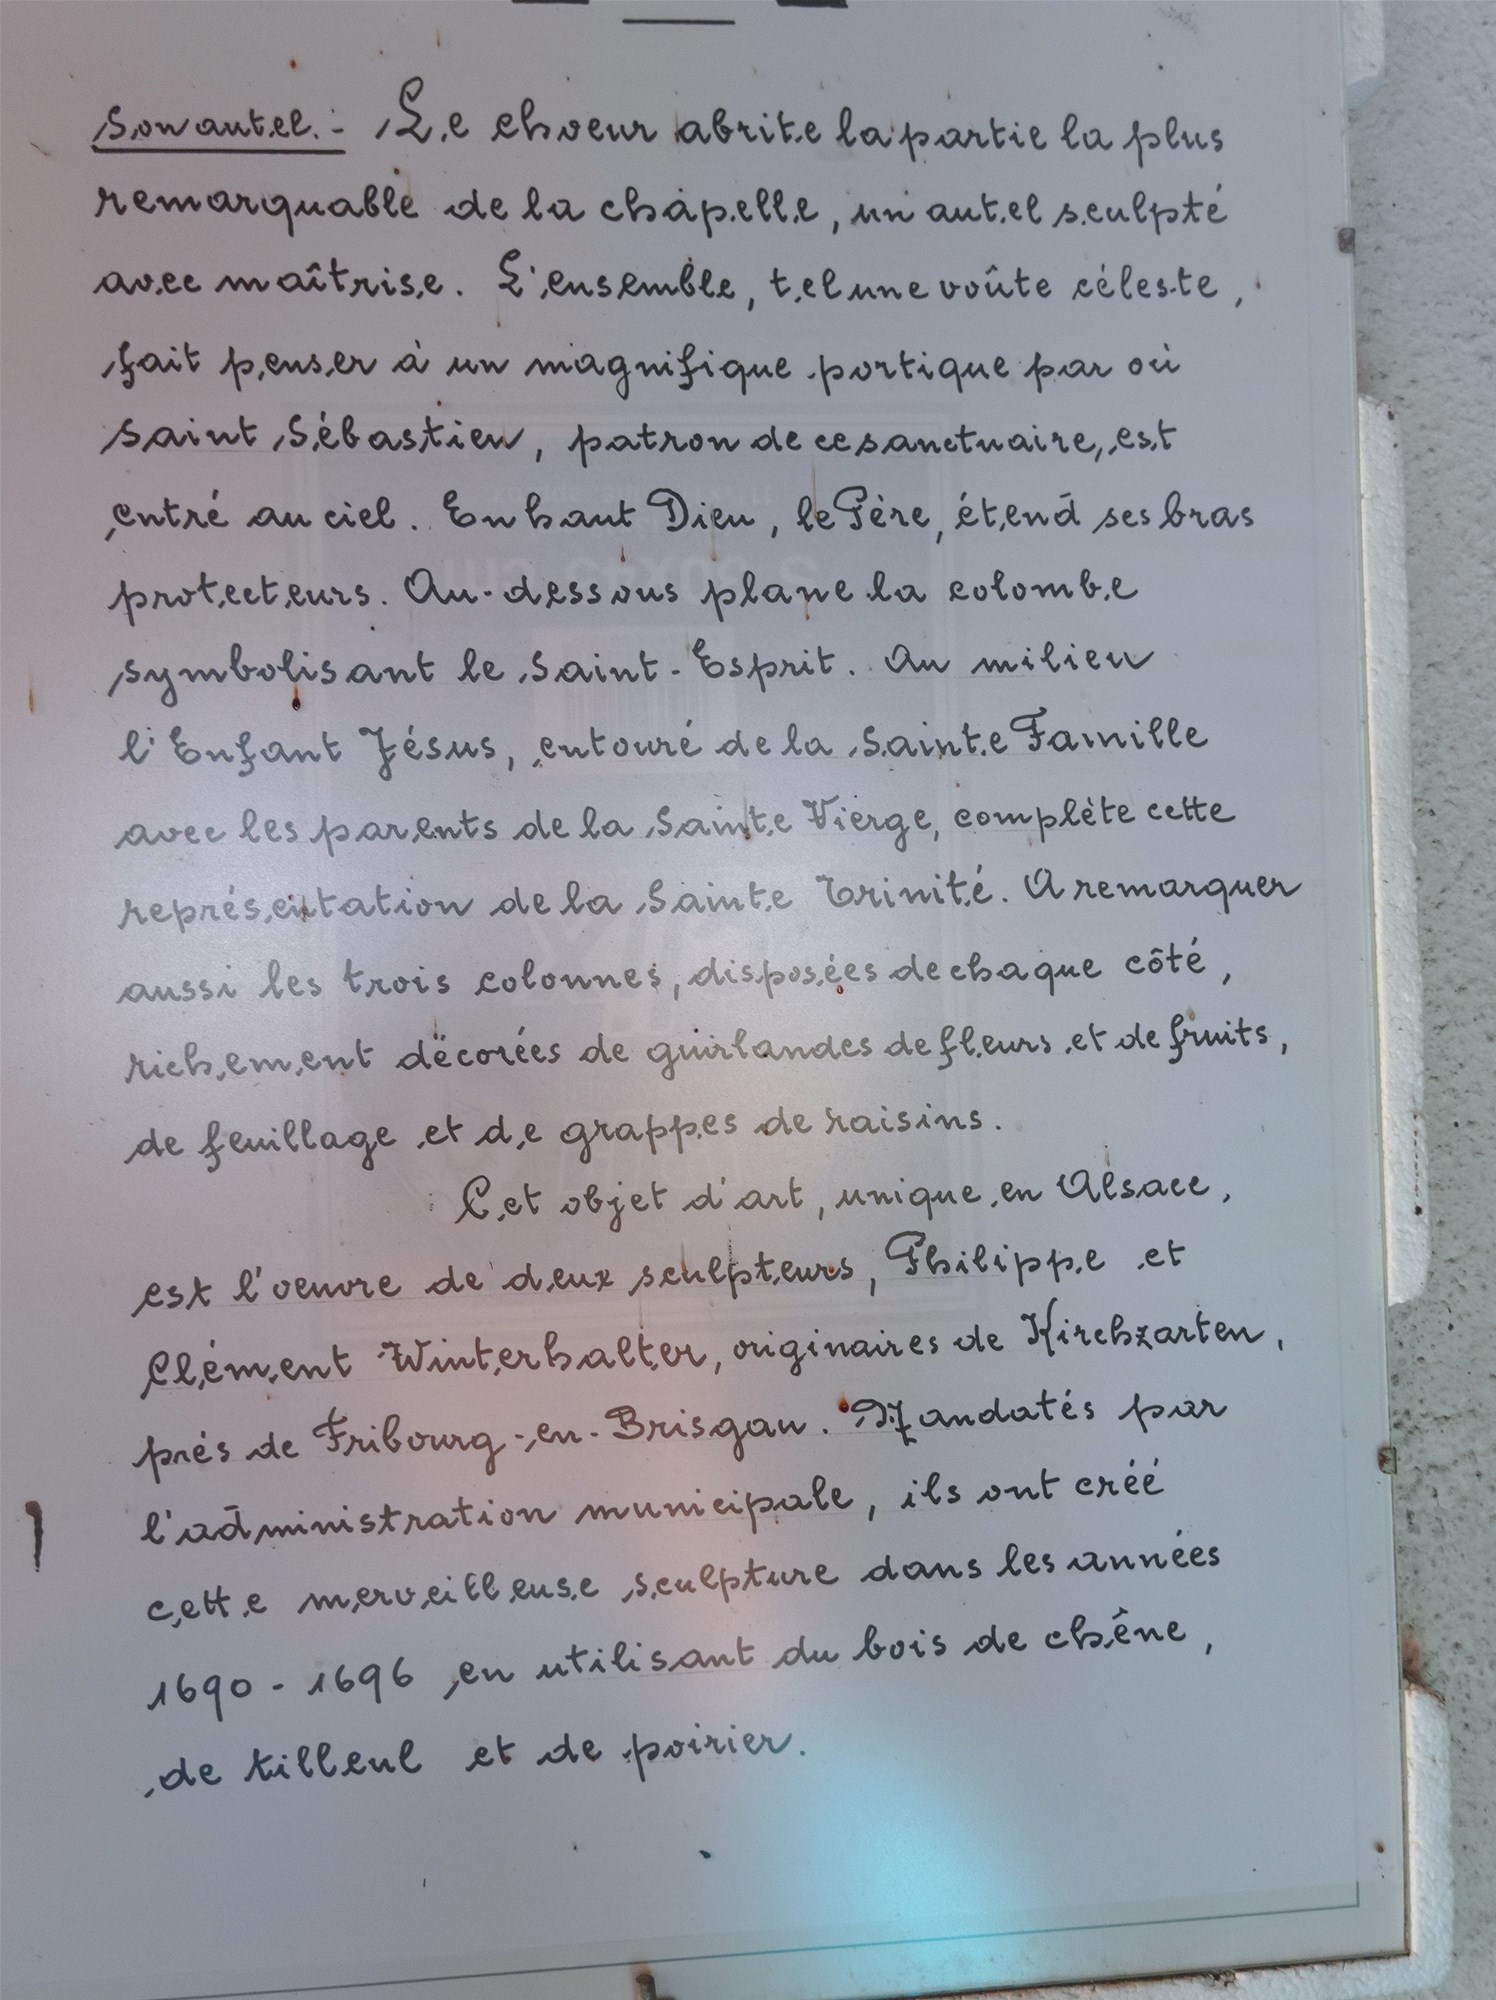 Son autel.- Le choeur abrite la partie la plus
remarquable de la chapelle, un autel sculpté
avec maîtrise. L'ensemble, tel une voûte céleste,
fait penser à un magnifique portique par où
Saint Sébastien, patron de ce sanctuaire, est
entré au ciel. En haut Dieu, le Père, étend ses bras
protecteurs. Au-dessous plane la colombe
symbolisant le Saint-Esprit. Au milieu
l'Enfant Jésus, entouré de la Sainte Famille
avec les parents de la Sainte Vierge, complète cette
représentation de la Sainte Trinité. A remarquer
aussi les trois colonnes, disposées de chaque côté,
richement décorées de guirlandes de fleurs et de fruits,
de feuillage et de grappes de raisins.
Cet objet d'art, unique en Alsace,
est l'oeuvre de deux sculpteurs, Philippe et
Clément Winterhalter, originaires de Kirchzarten,
près de Fribourg-en-Brisgau. Mandatés par
l'administration municipale, ils ont créé
cette merveilleuse sculpture dans les années
1690 - 1696 en utilisant du bois de chêne,
de tilleul et de poirier.